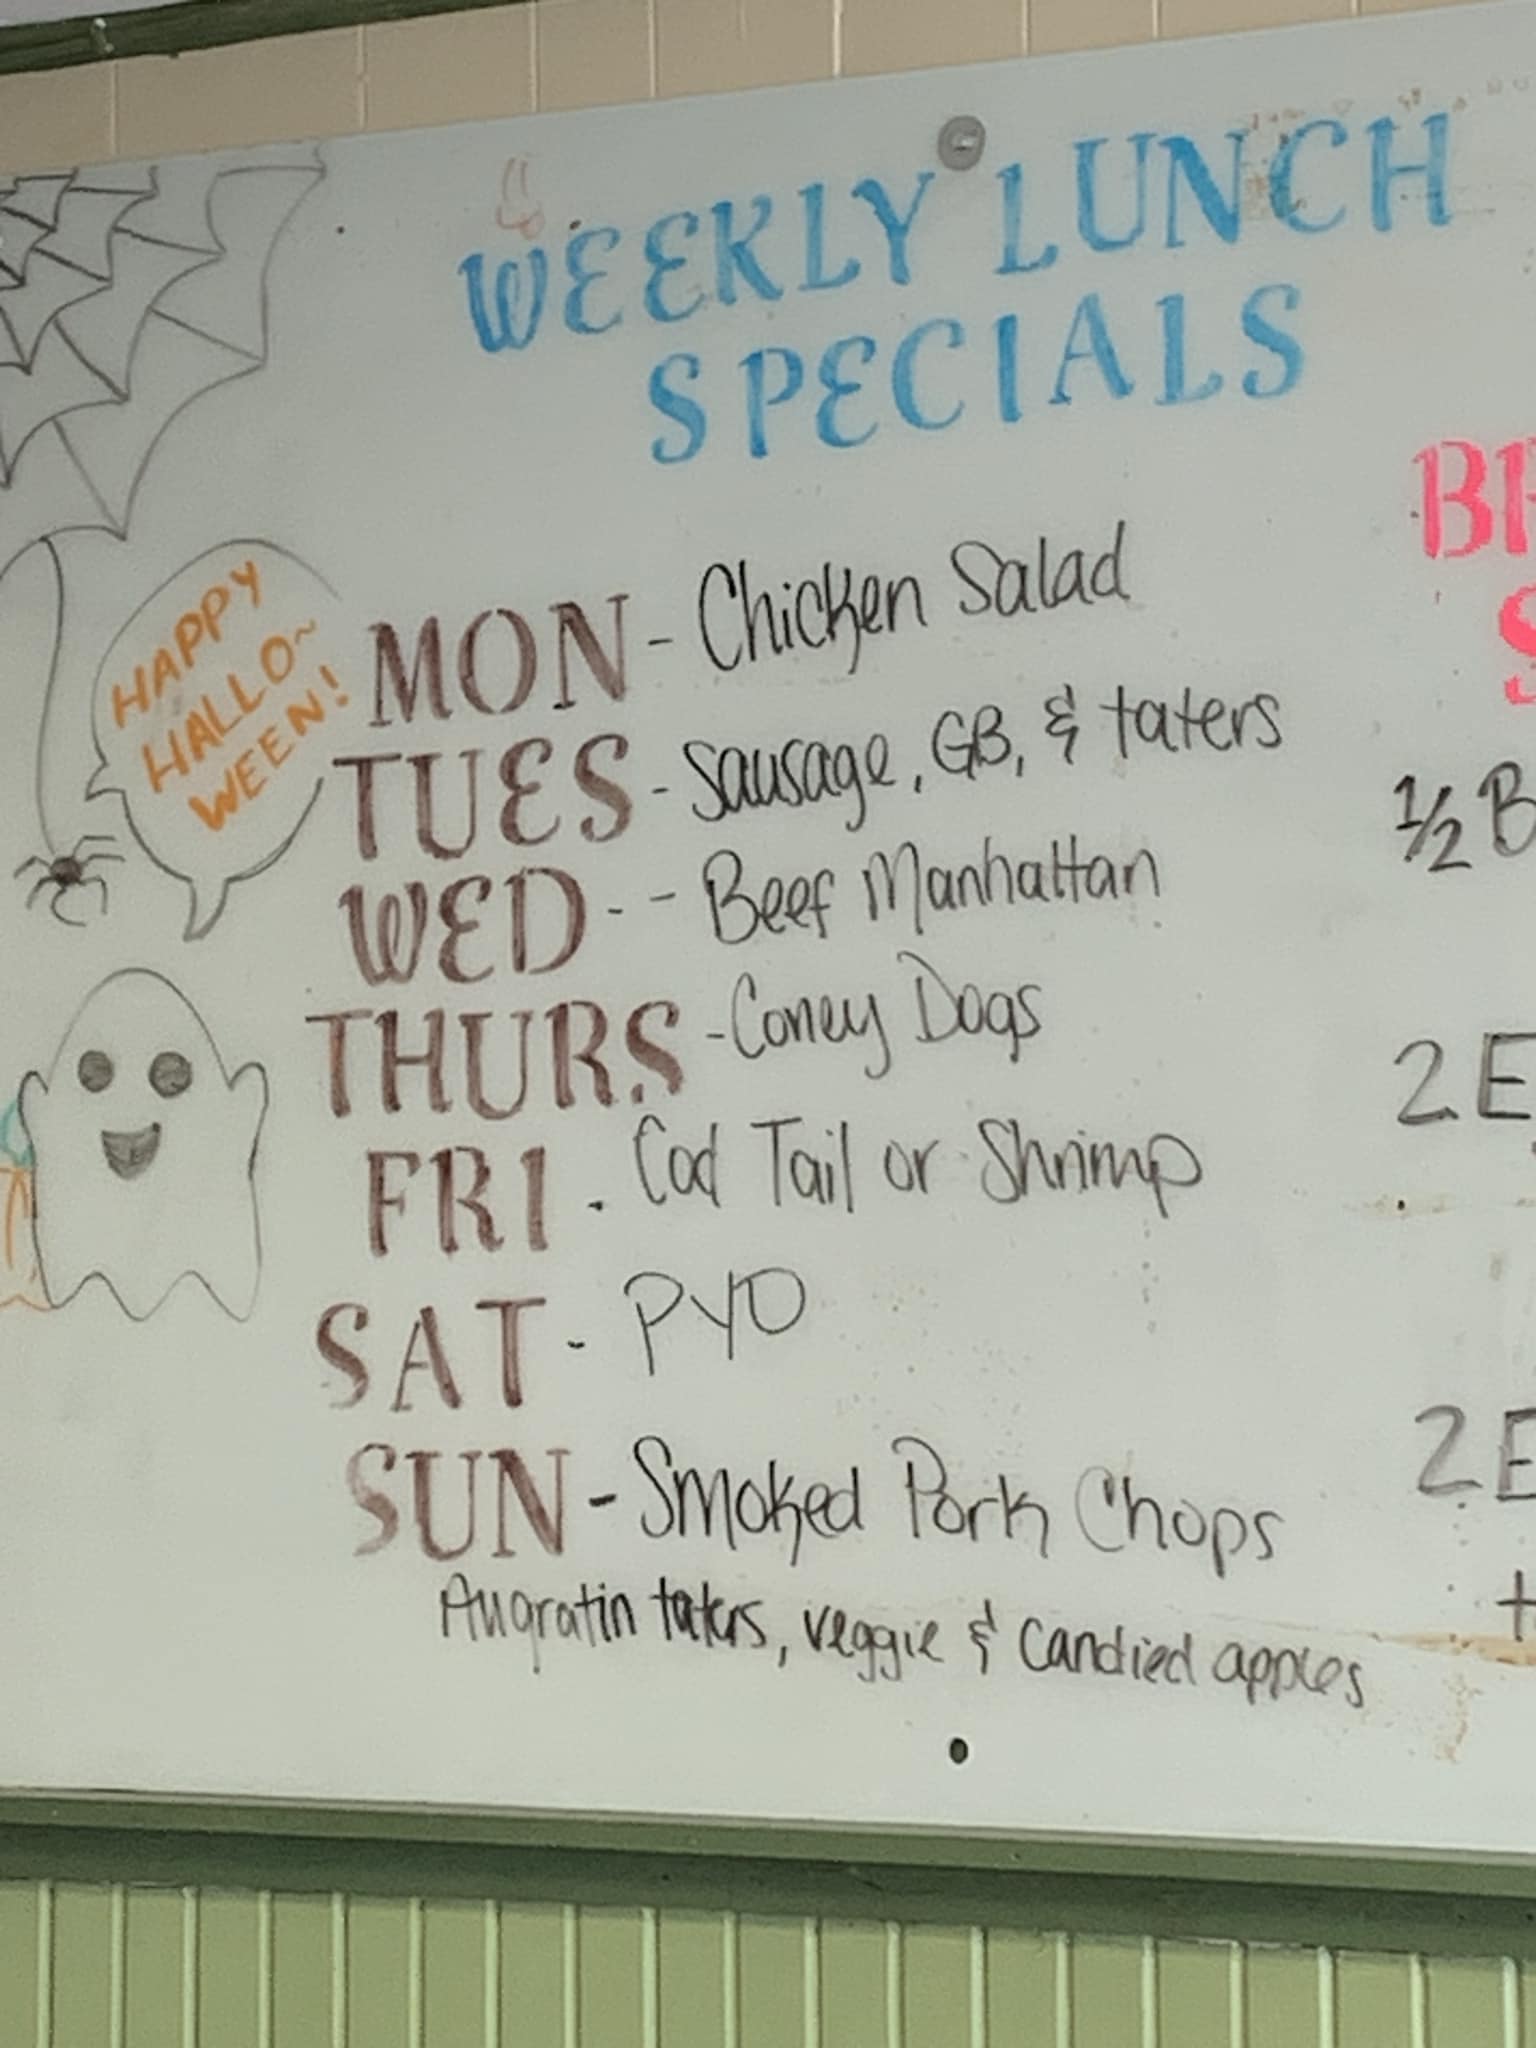 WEEKLY LUNCH
SPECIALS
HAPPY
HALLO~
WEEN!
MON - Chicken Salad
TUES - Sausage, GB, & taters
WED - - Beef Manhattan
THURS - Coney Dogs
FRI - Cod Tail or Shrimp
SAT - PYO
SUN - Smoked Pork Chops
Augratin taters, veggie & Candied apples
1/2 B
2 E
2 E
+